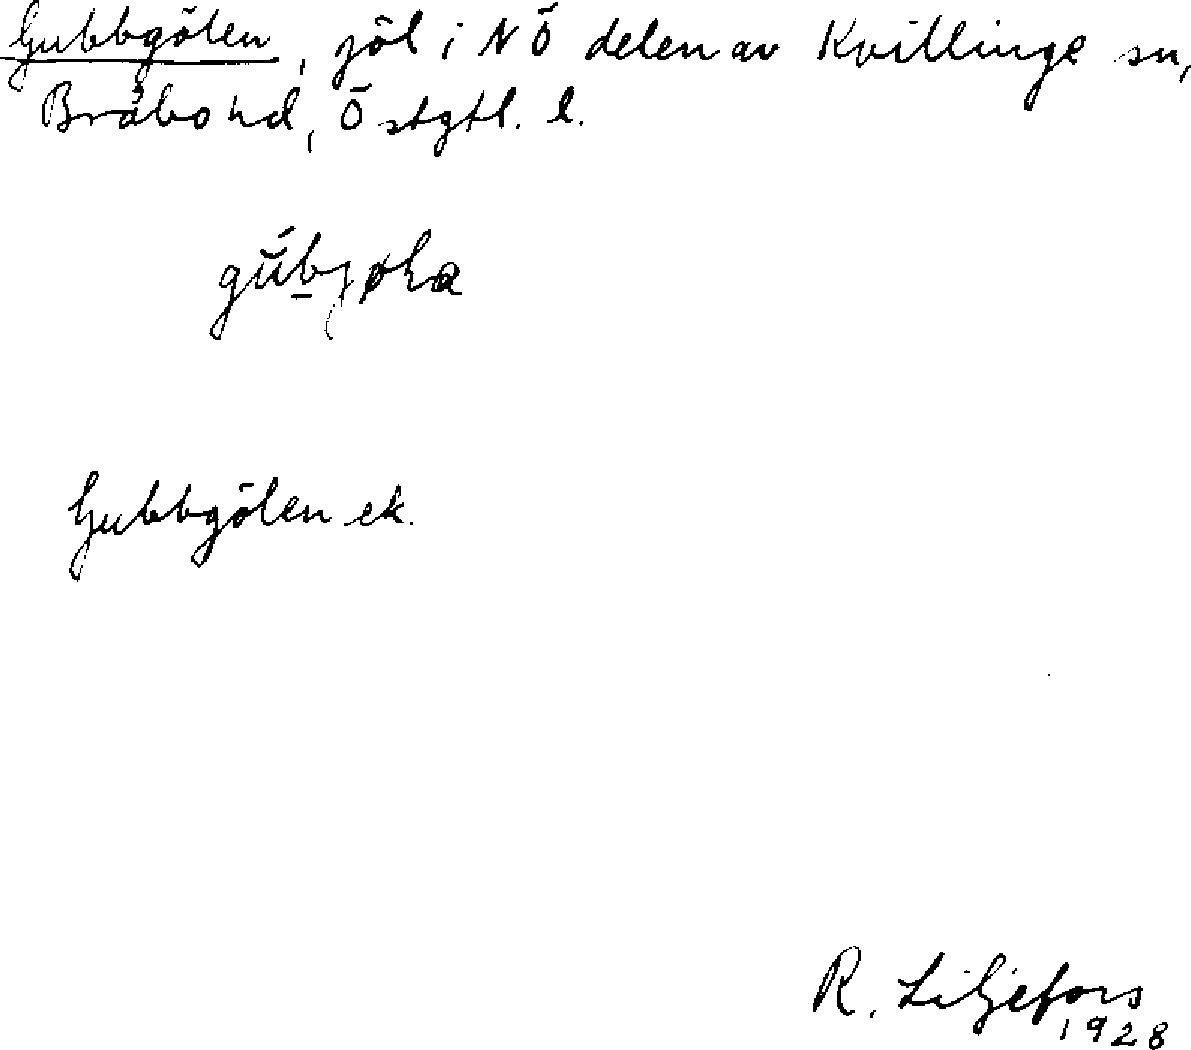 Gubbgölen, jöl i NÖ delen av Kvillinge sn,
Bråbo hd, Östgtl. l.
Gubbgölen ek.
R. Liljefors
1928